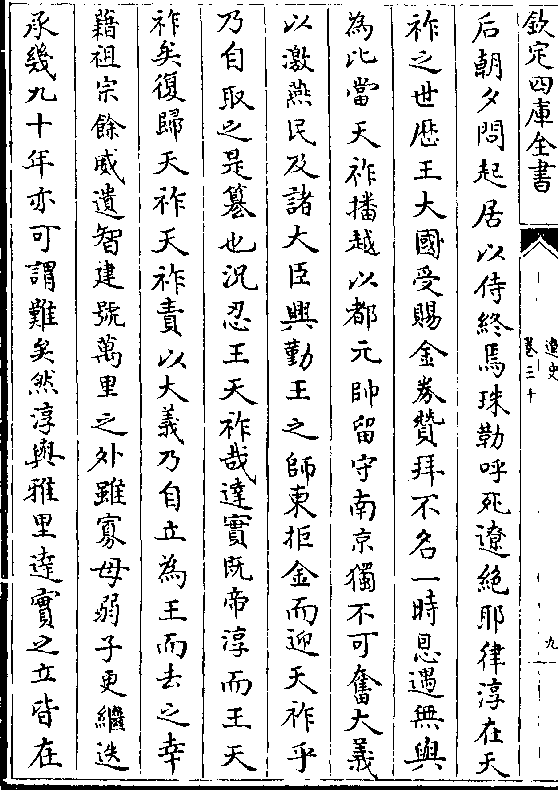 欽定四庫全書
遼史
卷三十
九
后朝夕問起居以侍終焉珠勒呼死遼絶耶律淳在天
祚之世歴王大國受賜金券贊拜不名一時恩遇無與
為比當天祚播越以都元帥留守南京獨不可奮大義
以激燕民及諸大臣興勤王之師東拒金而迎天祚乎
乃自取之是簒也况忍王天祚哉達實既帝淳而王天
祚矣復歸天祚天祚責以大義乃自立為王而去之幸
藉祖宗餘威遺智建號萬里之外雖寡母弱子更繼迭
承幾九十年亦可謂難矣然淳與雅里達實之立皆在